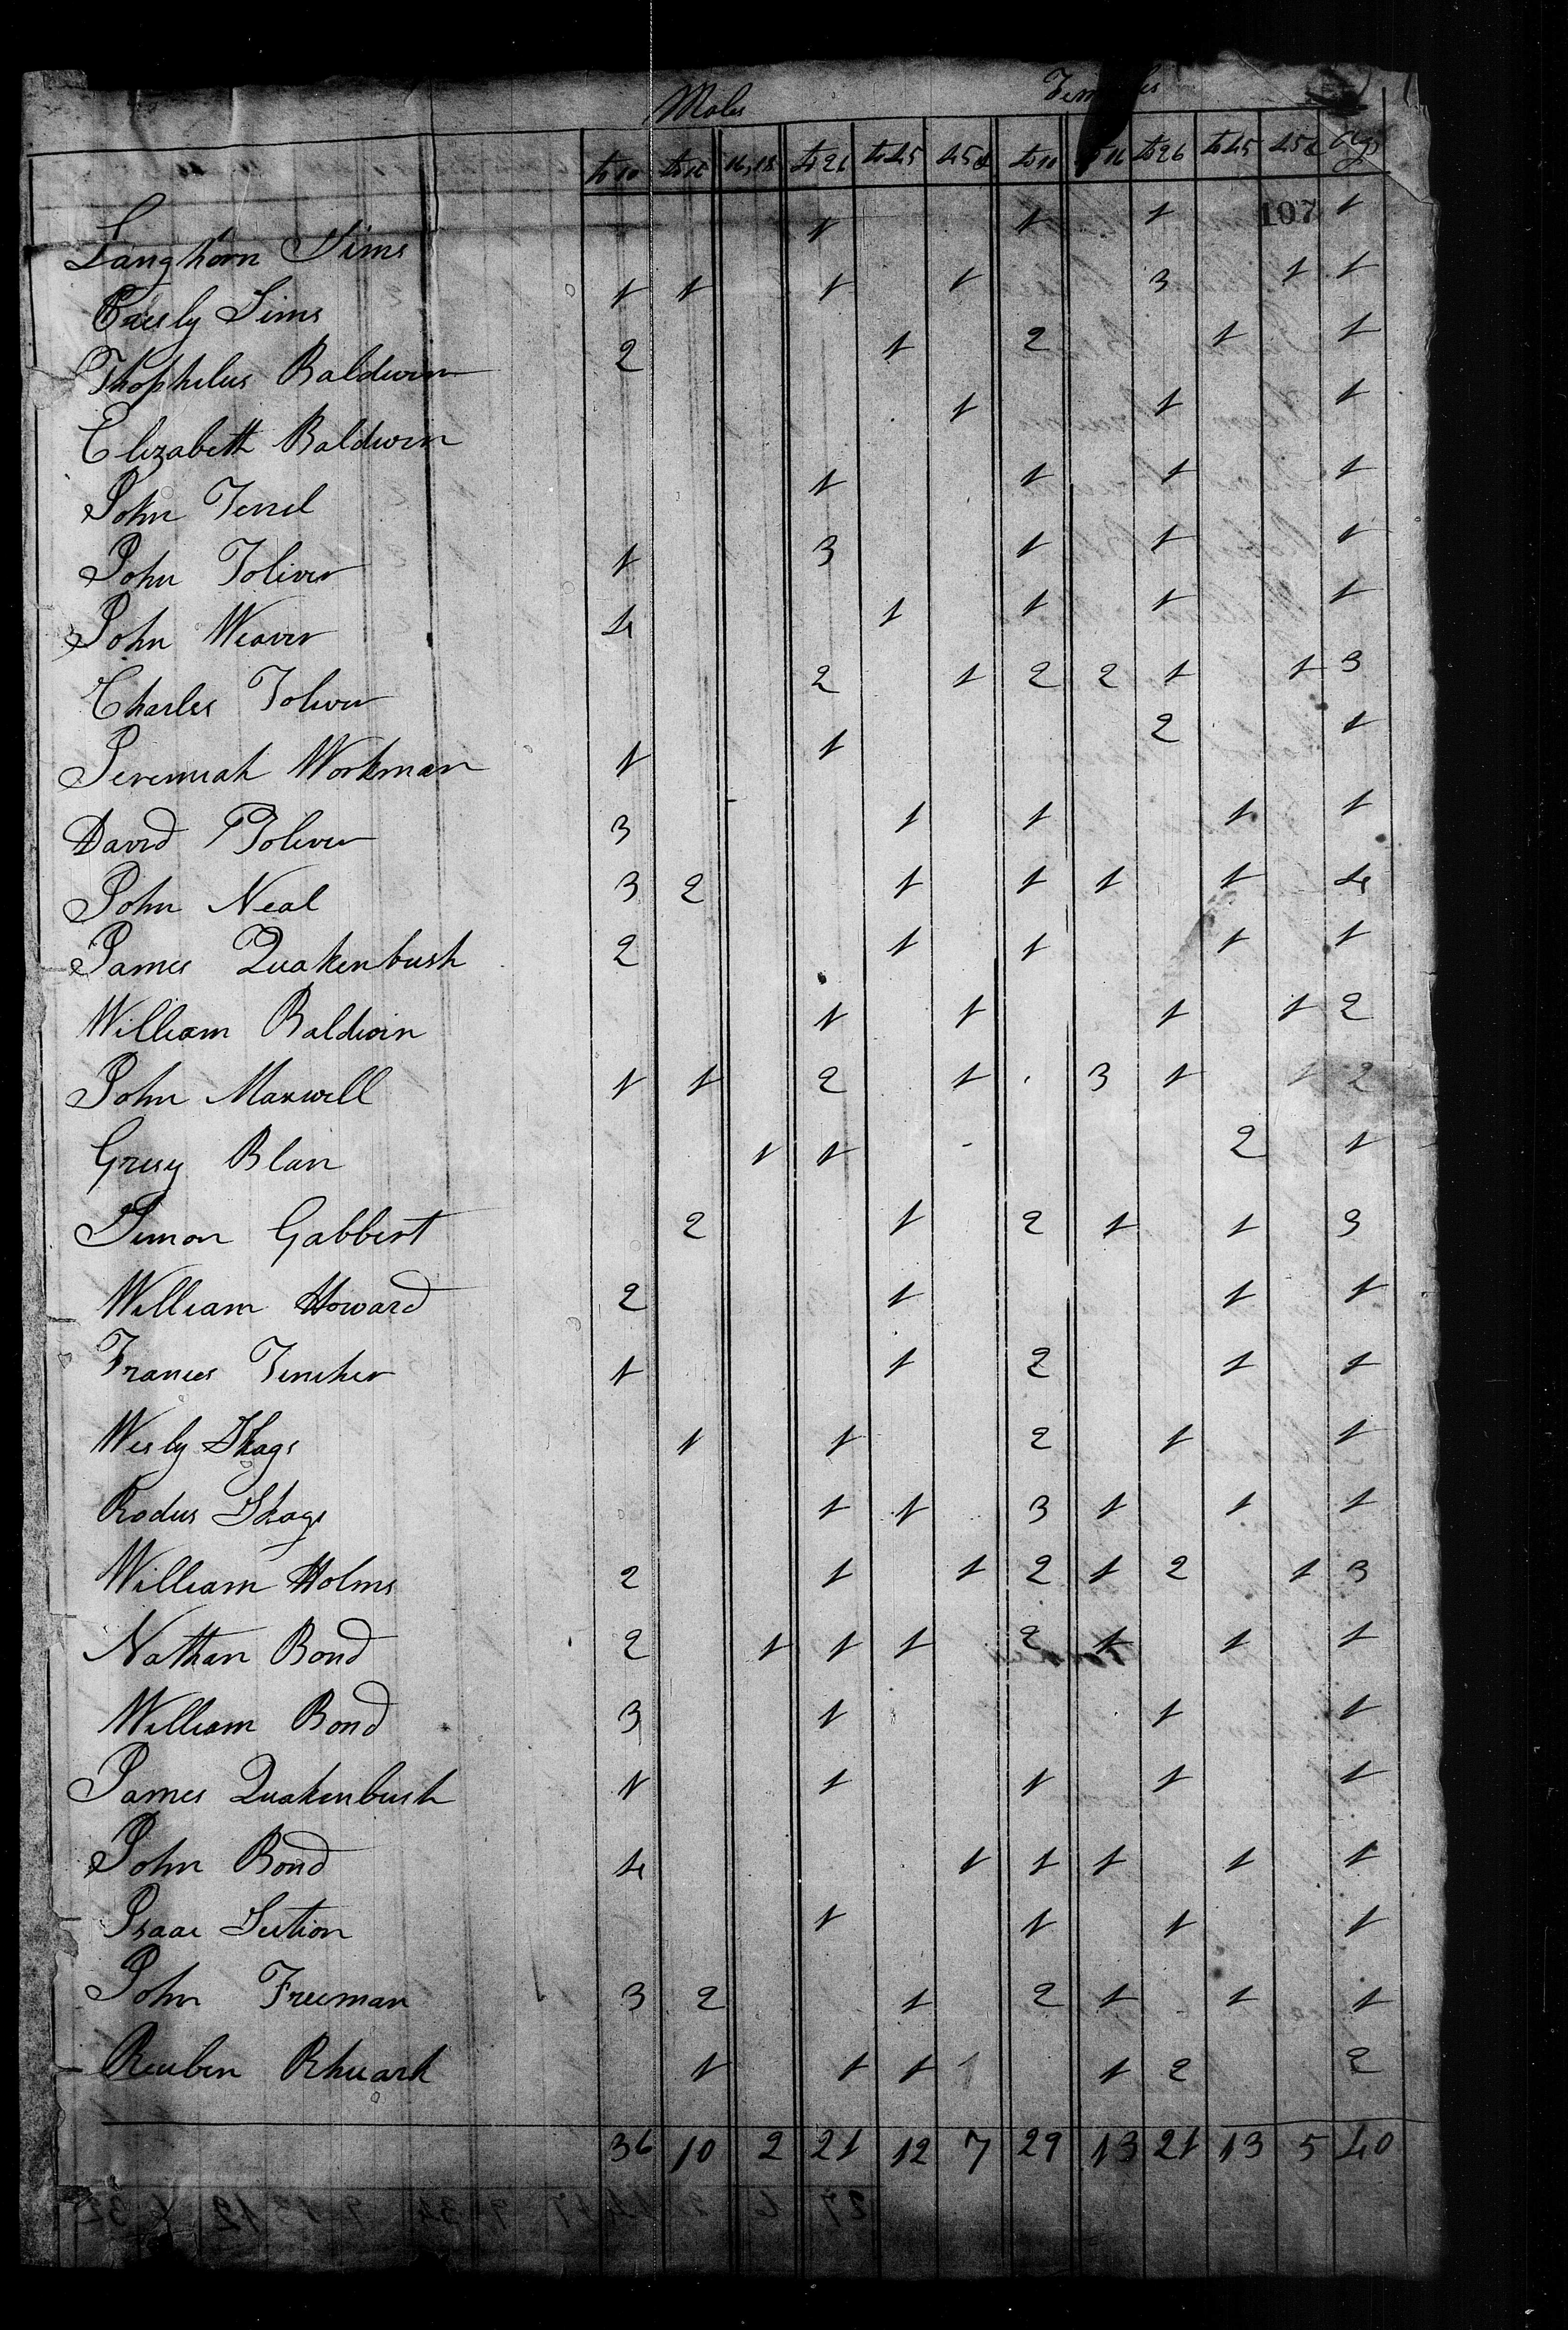 Males Females
to 10 to 16 16,18 to 26 to 45 45 & to 10 to 16 to 26 to 45 45 & Ag
107
Langhorn Sims 1 1 1 1
Paesly Sims 1 1 1 1 3 1 1
Thophilus Baldwin 2 1 2 1 1
Elizabeth Baldwin 1 1 1
John Terrel 1 1 1 1
John Toliver 1 3 1 1 1
John Weaver 4 1 1 1 1
Charles Toliver 2 1 2 2 1 1 3
Jeremiah Workman 1 1 2 1
David Toliver 3 1 1 1 1
John Neal 3 2 1 1 1 1 4
James Quakenbush 2 1 1 1 1
William Baldwin 1 1 1 1 2
John Maxwell 1 1 2 1 3 1 1 2
Gresy Blan 1 1 2 1
Simon Gabbert 2 1 2 1 1 3
William Howard 2 1 1 1
Frances Tincher 1 1 2 1 1
Wesly Skags 1 1 2 1 1
Rodus Skags 1 1 3 1 1 1
William Holms 2 1 1 2 1 2 1 3
Nathan Bond 2 1 1 1 2 1 1 1
William Bond 3 1 1 1
James Quakenbush 1 1 1 1 1
John Bond 4 1 1 1 1 1
Isaac Sutton 1 1 1 1
John Freeman 3 2 1 2 1 1 1
Reuben Rhuark 1 1 1 1 1 2 2
36 10 2 21 12 7 29 13 21 13 5 40